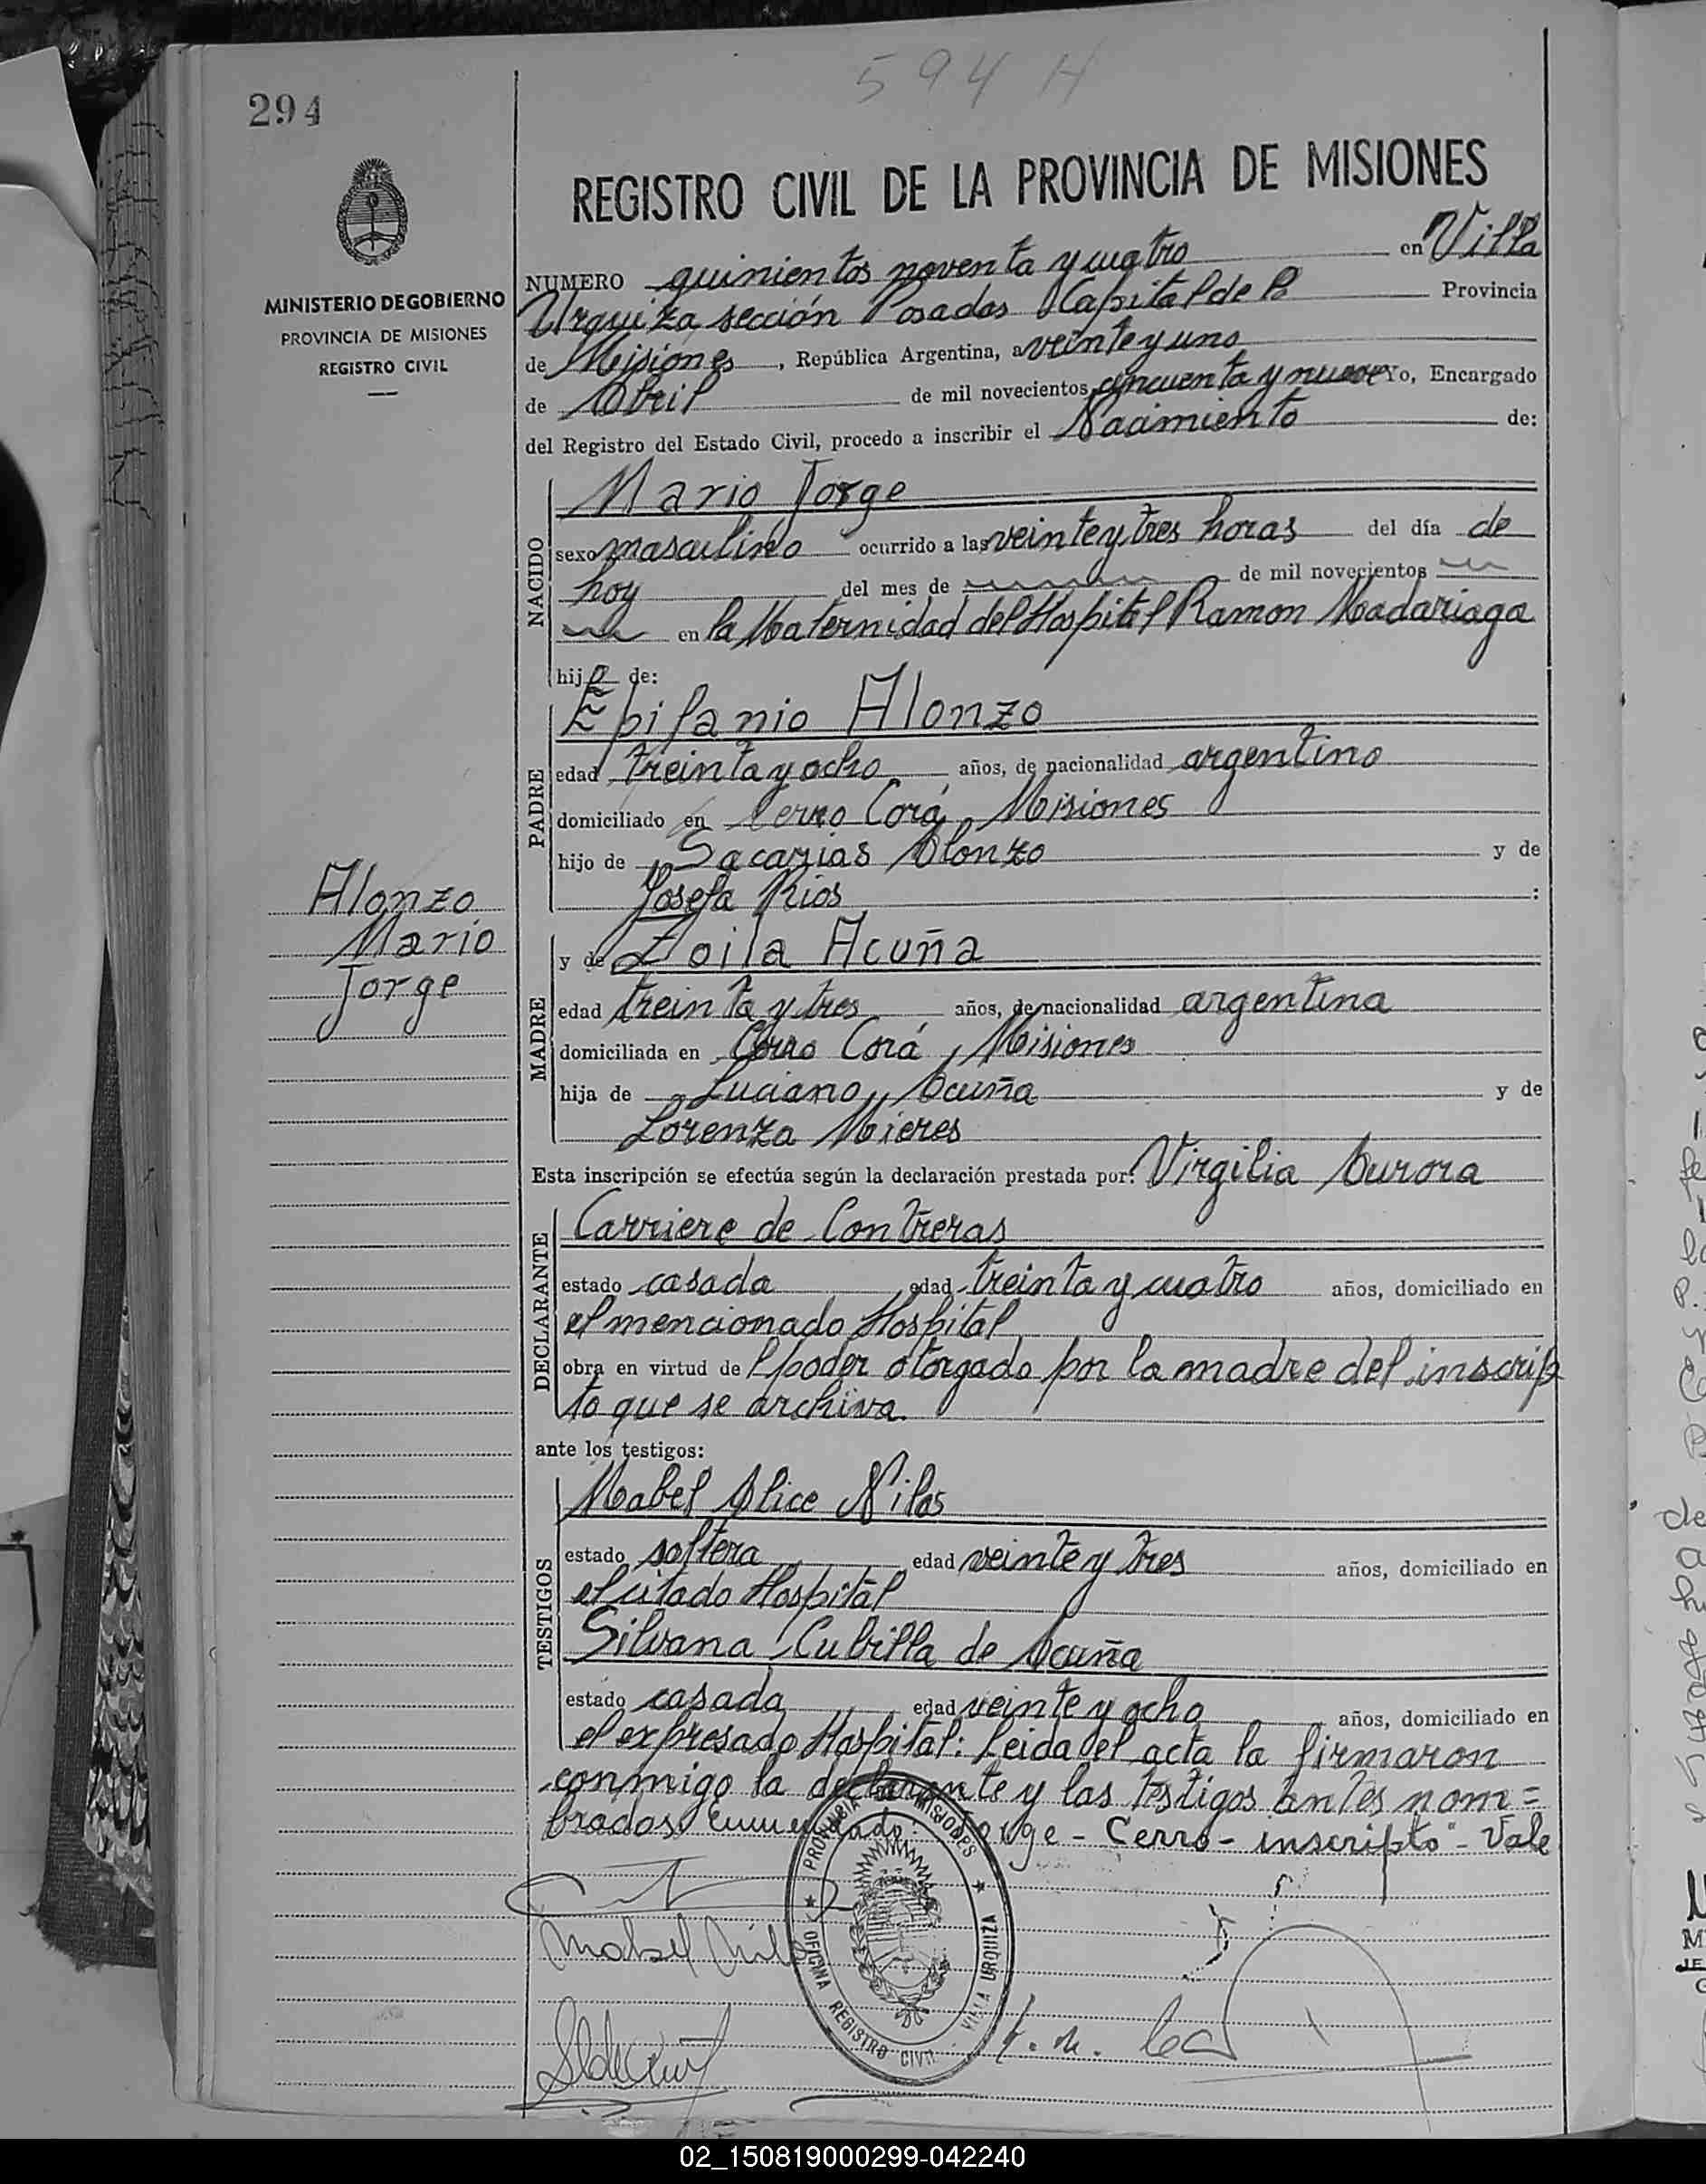 594 H
294
MINISTERIO DE GOBIERNO
PROVINCIA DE MISIONES
REGISTRO CIVIL
REGISTRO CIVIL DE LA PROVINCIA DE MISIONES
NUMERO quinientos noventa y cuatro en Villa
Urquiza sección Posadas Capital de la Provincia
de Misiones, República Argentina, a veinte y uno
de Abril de mil novecientos cincuenta y nueve Yo, Encargado
del Registro del Estado Civil, procedo a inscribir el Nacimiento de:
NACIDO
Mario Jorge
sexo masculino ocurrido a las veinte y tres horas del día de
hoy del mes de de mil novecientos
en la Maternidad del Hospital Ramon Madariaga
hijo de:
PADRE
Epifanio Alonzo
edad treinta y ocho años, de nacionalidad argentino
domiciliado en Cerro Corá, Misiones
hijo de Sacarias Alonzo y de
Josefa Rios :
Alonzo
Mario
Jorge
MADRE
y de Zoila Acuña
edad treinta y tres años, de nacionalidad argentina
domiciliada en Cerro Corá, Misiones
hija de Luciano Acuña y de
Lorenza Mieres
Esta inscripción se efectúa según la declaración prestada por: Virgilia Aurora
DECLARANTE
Carriere de Contreras
estado casada edad treinta y cuatro años, domiciliado en
el mencionado Hospital
obra en virtud del poder otorgado por la madre del inscrip
to que se archiva.
ante los testigos:
TESTIGOS
Mabel Alice Nilos
estado soltera edad veinte y tres años, domiciliado en
el citado Hospital
Silvana Cubilla de Acuña
estado casada edad veinte y ocho años, domiciliado en
el expresado Hospital: Leida el acta la firmaron
conmigo la declarante y las testigos antes nom=
bradas. Enmendado: "Jorge - Cerro - inscripto" - Vale
PROVINCIA DE MISIONES
OFICINA REGISTRO CIVIL - VILLA URQUIZA
02_150819000299-042240